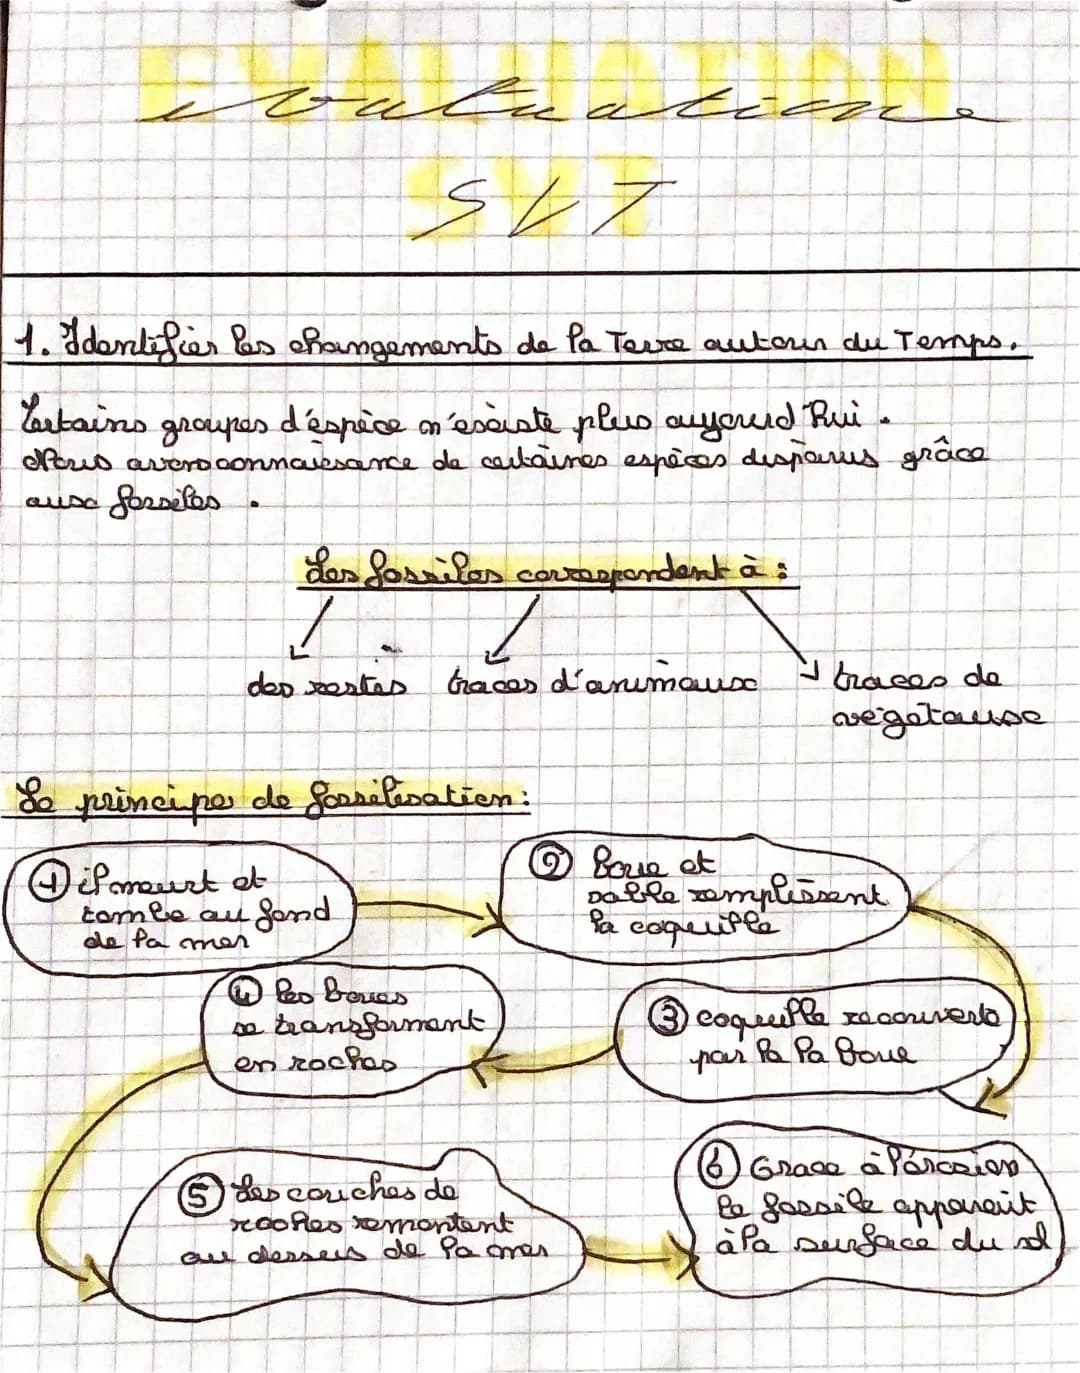 EVALUATION
evaluation
SVT
1. Identifier les changements de la Terre autour du Temps.
Certains groupes d'éspèce n'éxiste plus aujourd'hui.
Nous avons connaissance de certaines espèces disparus grâce
aux fossiles.
Les fossiles correspondent à :
des restes traces d'animaux traces de
végétaux
Le principe de fossilisation :
① il meurt et
tombe au fond
de la mer
② Boue et
sable remplissent
la coquille
③ coquille recouverte
par la la boue
④ les boues
se transforment
en roches
⑤ Les couches de
roches remontent
au dessus de la mer
⑥ Grace à l'érosion
le fossile apparait
à la surface du sol